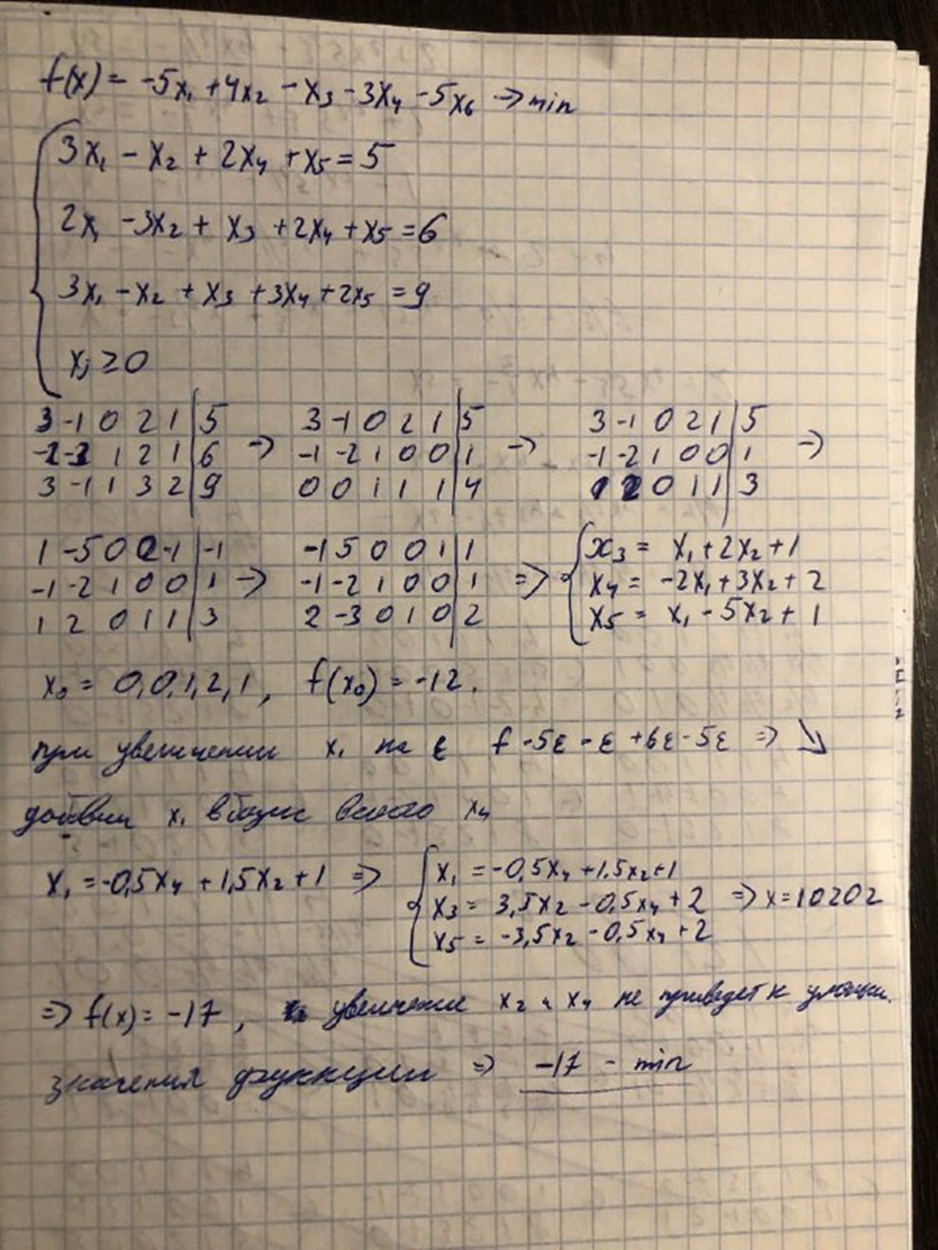 f(x) = -5x₁ + 4x₂ - x₃ - 3x₄ - 5x₆ → min
3x₁ - x₂ + 2x₄ + x₅ = 5
2x₁ - 3x₂ + x₃ + 2x₄ + x₅ = 6
3x₁ - x₂ + x₃ + 3x₄ + 2x₅ = 9
xⱼ ≥ 0
3 -1 0 2 1 | 5 3 -1 0 2 1 | 5 3 -1 0 2 1 | 5
-2 -3 1 2 1 | 6 → -1 -2 1 0 0 | 1 → -1 -2 1 0 0 | 1 →
3 -1 1 3 2 | 9 0 0 1 1 1 | 4 1 2 0 1 1 | 3
1 -5 0 0 -1 | -1 -1 5 0 0 1 | 1 x₃ = x₁ + 2x₂ + 1
-1 -2 1 0 0 | 1 → -1 -2 1 0 0 | 1 ⇒ x₄ = -2x₁ + 3x₂ + 2
1 2 0 1 1 | 3 2 -3 0 1 0 | 2 x₅ = x₁ - 5x₂ + 1
x₀ = 0,0,1,2,1, f(x₀) = -12.
при увеличении x₁ на ε f -5ε - ε + 6ε - 5ε ⇒ ↘
добавим x₁ в базис вместо x₄
x₁ = -0,5x₄ + 1,5x₂ + 1 ⇒ x₁ = -0,5x₄ + 1,5x₂ + 1
x₃ = 3,5x₂ - 0,5x₄ + 2 ⇒ x = 10202
x₅ = -3,5x₂ - 0,5x₄ + 2
⇒ f(x) = -17, увеличение x₂ и x₄ не приведет к
значения функции ⇒ -17 - min